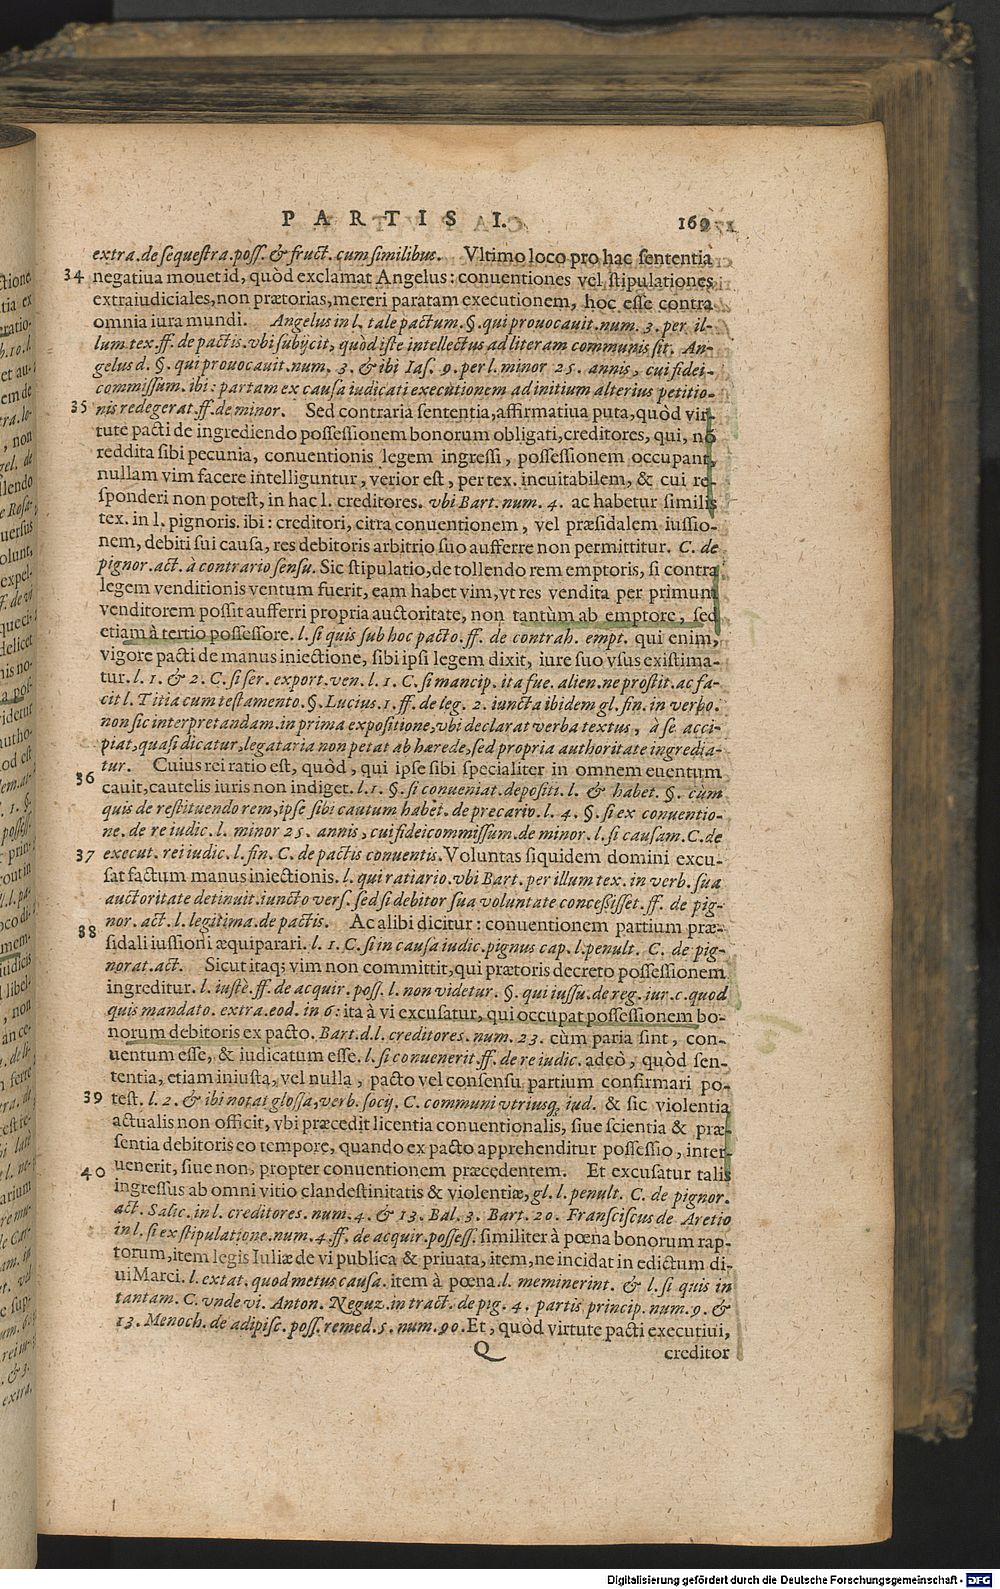 PARTIS I. 169
extra. de sequestra. poss. & fruct. cum similibus. Vltimo loco pro hac sententia
34 negatiua mouet id, quòd exclamat Angelus: conuentiones vel stipulationes
extraiudiciales, non prætorias, mereri paratam executionem, hoc esse contra
omnia iura mundi. Angelus in l. tale pactum. §. qui prouocauit. num. 3. per il-
lum tex. ff. de pactis. vbi subijcit, quòd iste intellectus ad literam communis sit. An-
gelus d. §. qui prouocauit. num. 3. & ibi Ias. 9. per l. minor 25. annis, cui fidei-
commissum. ibi: partam ex causa iudicati executionem ad initium alterius petitio-
35 nis redegerat. ff. de minor. Sed contraria sententia, affirmatiua puta, quòd vir-
tute pacti de ingrediendo possessionem bonorum obligati, creditores, qui, nō
reddita sibi pecunia, conuentionis legem ingressi, possessionem occupant,
nullam vim facere intelliguntur, verior est, per tex. ineuitabilem, & cui re-
sponderi non potest, in hac l. creditores. vbi Bart. num. 4. ac habetur similis
tex. in l. pignoris. ibi: creditori, citra conuentionem, vel præsidalem iussio-
nem, debiti sui causa, res debitoris arbitrio suo aufferre non permittitur. C. de
pignor. act. à contrario sensu. Sic stipulatio, de tollendo rem emptoris, si contra
legem venditionis ventum fuerit, eam habet vim, vt res vendita per primum
venditorem possit aufferri propria auctoritate, non tantùm ab emptore, sed
etiam à tertio possessore. l. si quis sub hoc pacto. ff. de contrah. empt. qui enim,
vigore pacti de manus iniectione, sibi ipsi legem dixit, iure suo vsus existima-
tur. l. 1. & 2. C. si ser. export. ven. l. 1. C. si mancip. ita fue. alien. ne prostit. ac fa-
cit l. Titia cum testamento. §. Lucius. 1. ff. de leg. 2. iuncta ibidem gl. fin. in verbo.
non sic interpretandam. in prima expositione, vbi declarat verba textus, à se acci-
piat, quasi dicatur, legataria non petat ab hærede, sed propria authoritate ingredia-
tur. Cuius rei ratio est, quòd, qui ipse sibi specialiter in omnem euentum
36 cauit, cautelis iuris non indiget. l. 1. §. si conueniat. depositi. l. & habet. §. cum
quis de restituendo rem, ipse sibi cautum habet. de precario. l. 4. §. si ex conuentio-
ne. de re iudic. l. minor 25. annis, cui fideicommissum. de minor. l. si causam. C. de
37 execut. rei iudic. l. fin. C. de pactis conuentis. Voluntas siquidem domini excu-
sat factum manus iniectionis. l. qui ratiario. vbi Bart. per illum tex. in verb. sua
auctoritate detinuit. iuncto vers. sed si debitor sua voluntate concessisset. ff. de pig-
nor. act. l. legitima. de pactis. Ac alibi dicitur: conuentionem partium præ-
38 sidali iussioni æquiparari. l. 1. C. si in causa iudic. pignus cap. l. penult. C. de pig-
norat. act. Sicut itaq; vim non committit, qui prætoris decreto possessionem
ingreditur. l. iustè. ff. de acquir. poss. l. non videtur. §. qui iussu. de reg. iur. c. quod
quis mandato. extra. eod. in 6: ita à vi excusatur, qui occupat possessionem bo-
norum debitoris ex pacto. Bart. d. l. creditores. num. 23. cùm paria sint, con-
uentum esse, & iudicatum esse. l. si conuenerit. ff. de re iudic. adeò, quòd sen-
tentia, etiam iniusta, vel nulla, pacto vel consensu partium confirmari po-
39 test. l. 2. & ibi notat glossa, verb. socij. C. communi vtriusq; iud. & sic violentia
actualis non officit, vbi præcedit licentia conuentionalis, siue scientia & præ-
sentia debitoris eo tempore, quando ex pacto apprehenditur possessio, inter-
uenerit, siue non, propter conuentionem præcedentem. Et excusatur talis
40 ingressus ab omni vitio clandestinitatis & violentiæ, gl. l. penult. C. de pignor.
act. Salic. in l. creditores. num. 4. & 13. Bal. 3. Bart. 20. Fransciscus de Aretio
in l. si ex stipulatione. num. 4. ff. de acquir. possess. similiter à pœna bonorum rap-
torum, item legis Iuliæ de vi publica & priuata, item, ne incidat in edictum di-
ui Marci. l. extat. quod metus causa. item à pœna. l. meminerint. & l. si quis in
tantam. C. vnde vi. Anton. Neguz. in tract. de pig. 4. partis princip. num. 9. &
13. Menoch. de adipisc. poss. remed. 5. num. 90. Et, quòd virtute pacti executiui,
Q creditor
Digitalisierung gefördert durch die Deutsche Forschungsgemeinschaft - DFG